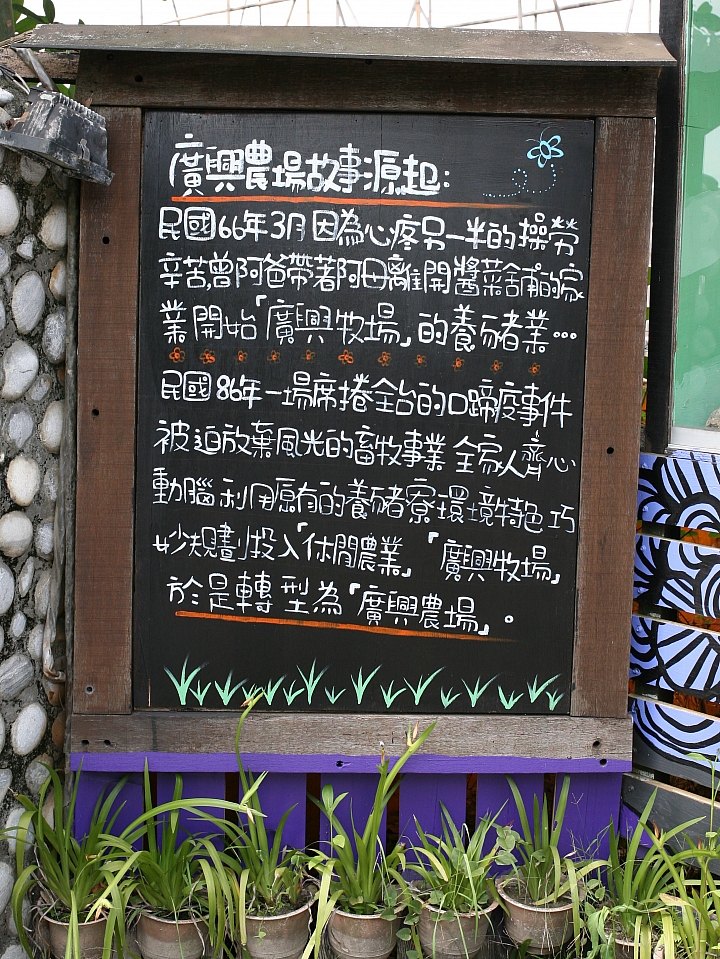 廣興農場故事源起:
民國66年3月因為心疼另一半的操勞
辛苦,曾阿爸帶著阿母離開醬菜舖的家
業開始「廣興牧場」的養豬業…
民國86年一場席捲全台的口蹄疫事件
被迫放棄風光的畜牧事業 全家人齊心
動腦利用原有的養豬寮環境特色巧
妙規劃投入「休閒農業」「廣興牧場」
於是轉型為「廣興農場」。